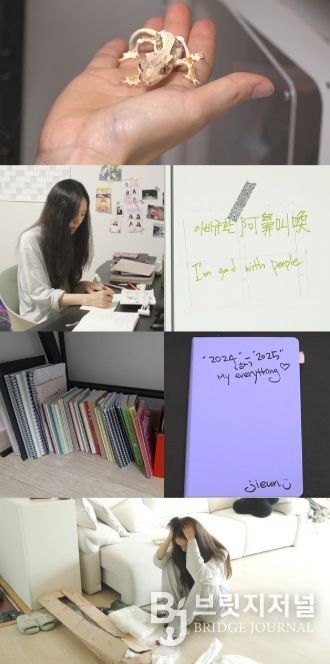 아비규환 阿鼻叫喚
I'm good with people
"2024" ~ "2025"
My everything♡
jieun
브릿지저널
BRIDGE JOURNAL